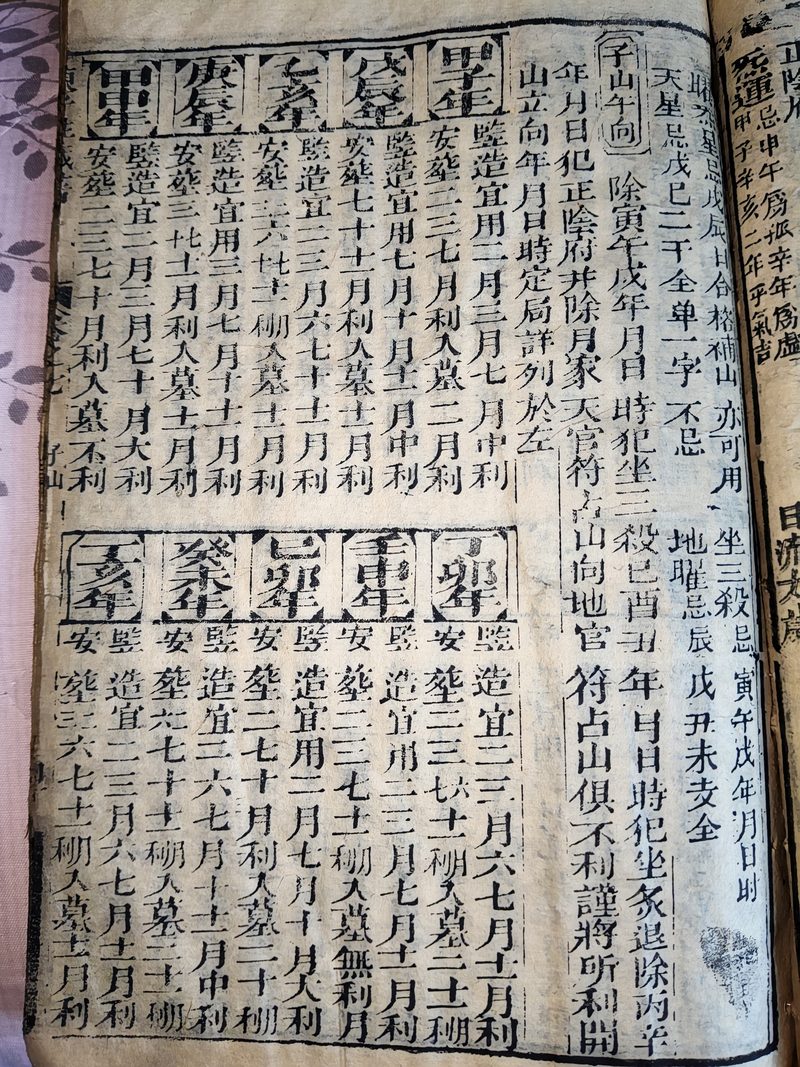 正陰府
死運忌申午為孤辛年為虛
甲子辛亥二年乎氣吉
曜煞星忌戊辰日合格補山亦可用
坐三殺忌寅午戌年月日时
天星忌戊巳二干全单一字不忌
地曜忌辰戊丑未支全
子山午向
除寅午戌年月日時犯坐三殺巳酉丑年月日時犯坐炙退除丙辛
年月日犯正陰府并除月家天官符占山向地官符占山俱不利謹將所利開
山立向年月日時定局詳列於左
甲子年
竪造宜用二月三月七月中利
安塟二三七月利入墓二月利
戊辰年
竪造宜用七月十月十一月中利
安塟七十十一月利入墓十一月利
乙亥年
竪造宜二三月六七十十一月利
庚辰年
竪造宜用三月七月十十一月利
甲申年
竪造宜二月三月七十月大利
安塟二三七十月利入墓不利
丁卯年
竪造宜二三月六七月十一月利
壬申年
竪造宜用二三月七月十一月利
安塟二三七十一月利入墓無利月
己卯年
竪造宜用二月七月十月大利
安塟二七十月利入墓二十月利
癸未年
竪造宜二六七月十十一月中利
丁亥年
竪造宜二三月六七月十一月利
安塟三六七十一月利入墓十一月利
子山